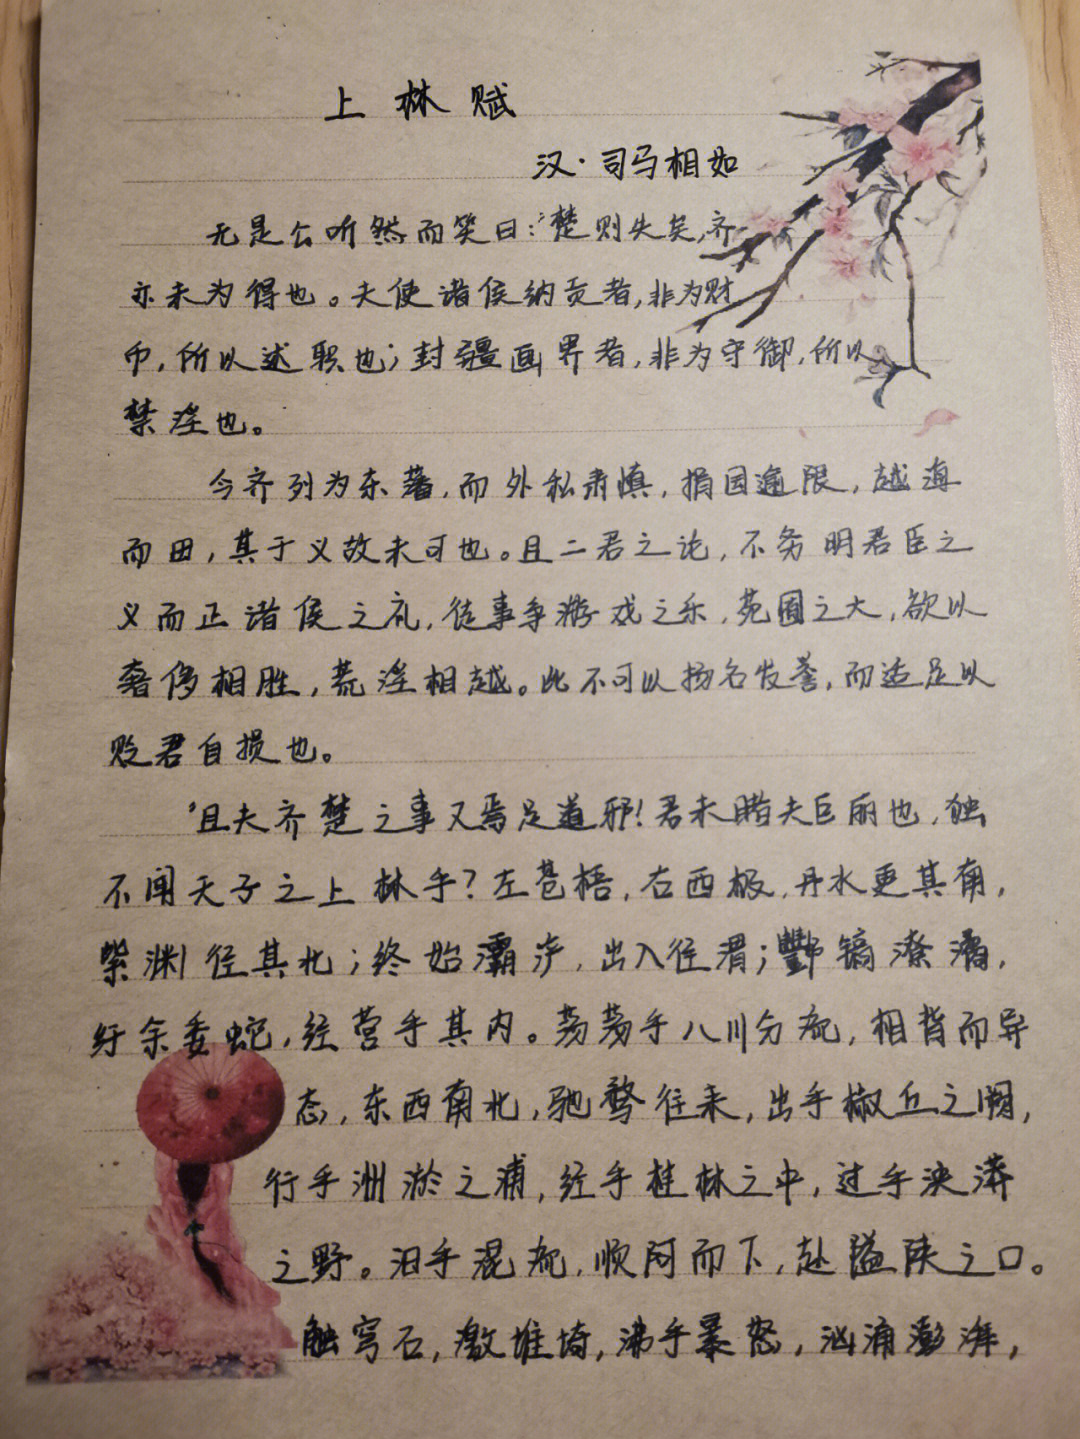 上林赋
汉·司马相如
无是公听然而笑曰:“楚则失矣,齐
亦未为得也。夫使诸侯纳贡者,非为财
币,所以述职也;封疆画界者,非为守御,所以
禁淫也。
今齐列为东藩,而外私肃慎,捐国逾限,越海
而田,其于义故未可也。且二君之论,不务明君臣之
义而正诸侯之礼,徒事争游戏之乐,苑囿之大,欲以
奢侈相胜,荒淫相越。此不可以扬名发誉,而适足以
贬君自损也。
'且夫齐楚之事又焉足道邪!君未睹夫巨丽也,独
不闻天子之上林乎?左苍梧,右西极,丹水更其南,
紫渊径其北;终始灞浐,出入径渭;酆镐潦潏,
纡余委蛇,经营乎其内。荡荡乎八川分流,相背而异
态,东西南北,驰骛往来,出乎椒丘之阙,
行乎洲淤之浦,经乎桂林之中,过乎泱漭
之野。汩乎混流,顺阿而下,赴隘陕之口。
触穹石,激堆埼,沸乎暴怒,汹涌澎湃,